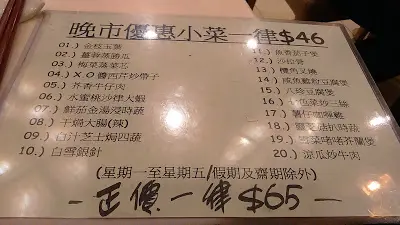 晚市優惠小菜一律$46
01.) 金枝玉葉
02.) 薑蓉蒸勝瓜
03.) 梅菜蒸菜芯
04.) X O 醬西芹炒帶子
05.) 芥香牛仔肉
06.) 水蜜桃沙律大蝦
07.) 鮮茄金湯浸時蔬
08.) 干煱大腸(辣)
09.) 白汁芝士焗四蔬
10.) 白雪銀針
11.) 魚香茄子煲
12.) 沙拉骨
13.) 欖角叉燒
14.) 咸魚雞粒豆腐煲
15.) 八珍豆腐煲
16.) 菜炒三絲
17.) 薯仔咖喱雞
18.) 扒時蔬
19.) 啫啫芥蘭煲
20.) 涼瓜炒牛肉
(星期一至星期五/假期及齋期除外)
- 正價一律$65 -